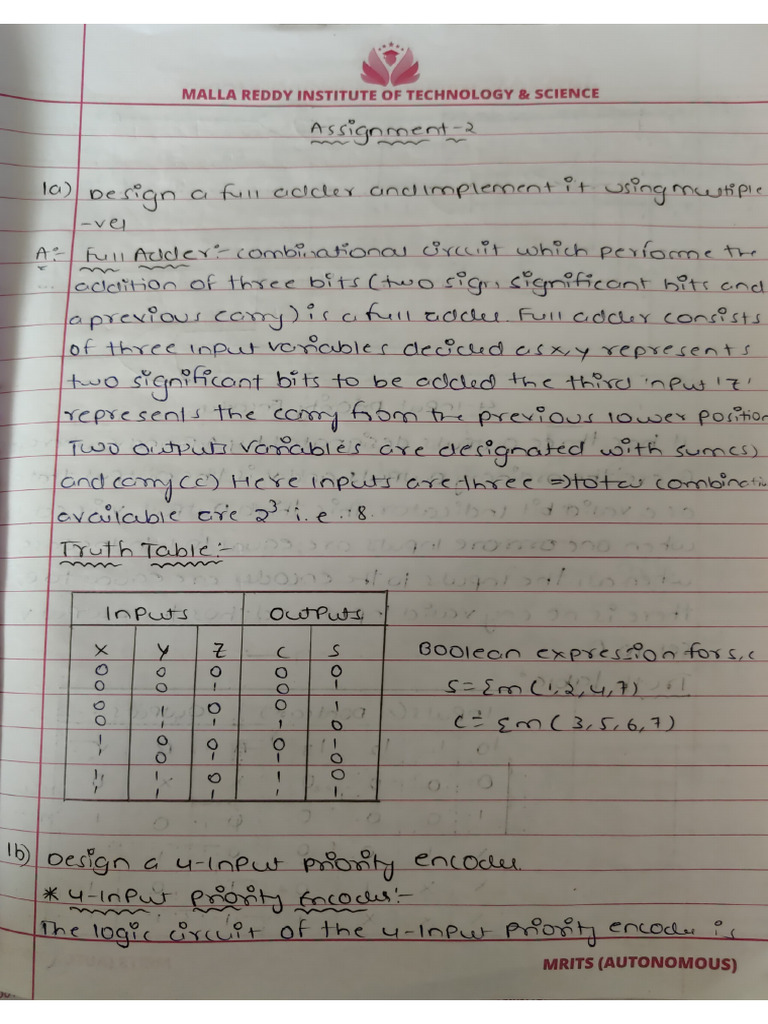 MALLA REDDY INSTITUTE OF TECHNOLOGY & SCIENCE
Assignment-2
1a) Design a full adder and implement it using multiple
-vel
A:- Full Adder:- combinational circuit which performe the
addition of three bits (two sign, significant bits and
a previous carry) is a full adder. Full adder consists
of three input variables decided as x,y represents
two significant bits to be added the third input 'z'
represents the carry from the previous lower position
Two outputs variables are designated with sum(s)
and carry (c) Here inputs are three => total combinatio
available are 2³ i.e. 8.
Truth Table:-
Inputs Outputs
X Y Z C S
0 0 0 0 0
0 0 1 0 1
0 1 0 0 1
0 1 1 1 0
1 0 0 0 1
1 0 1 1 0
1 1 0 1 0
1 1 1 1 1
Boolean expression for s,c
S = Σm (1,2,4,7)
C = Σm (3,5,6,7)
1b) Design a 4-input priority encoder.
* 4-input priority Encoder:-
The logic circuit of the 4-input priority encoder is
MRITS (AUTONOMOUS)